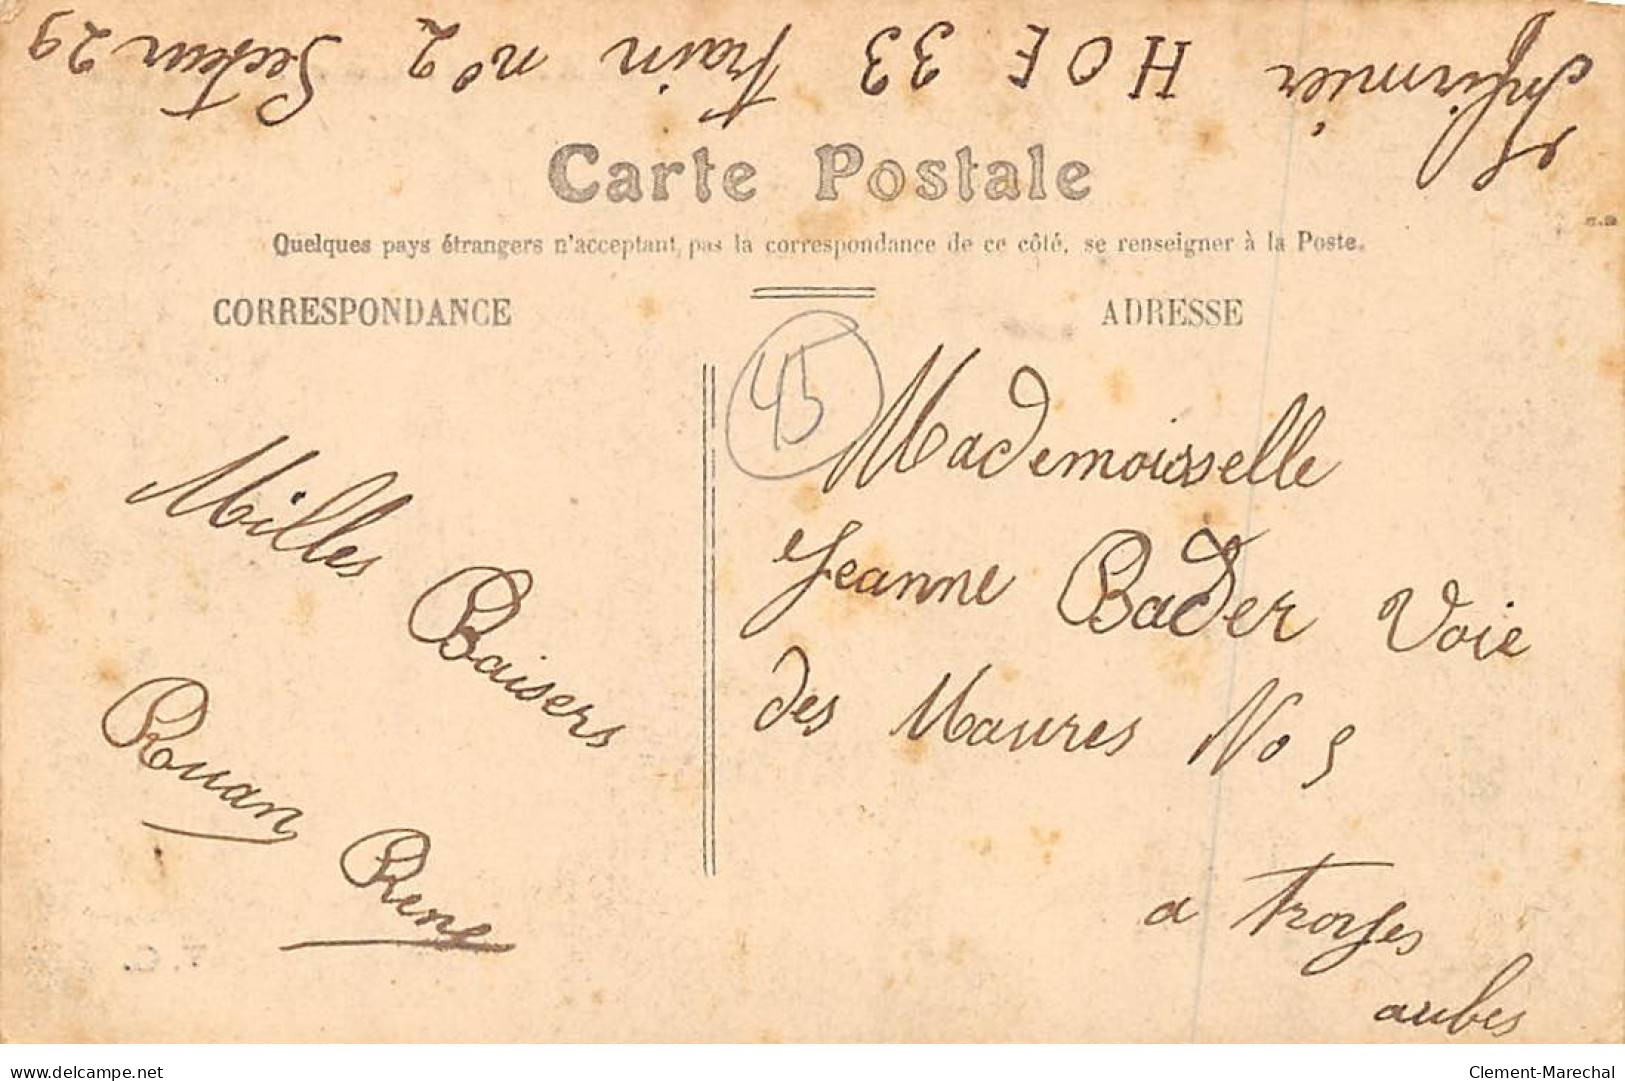 Infirmier HOE 33 train n° 2 Secteur 29
Carte Postale
Quelques pays étrangers n'acceptant pas la correspondance de ce côté, se renseigner à la Poste.
CORRESPONDANCE
ADRESSE
45
Milles Baisers
Ruan
Rene
Mademoisselle
Jeanne Bader Voie
des Maures No 5
a Troyes
aubes
delcampe.net
Clement-Marechal